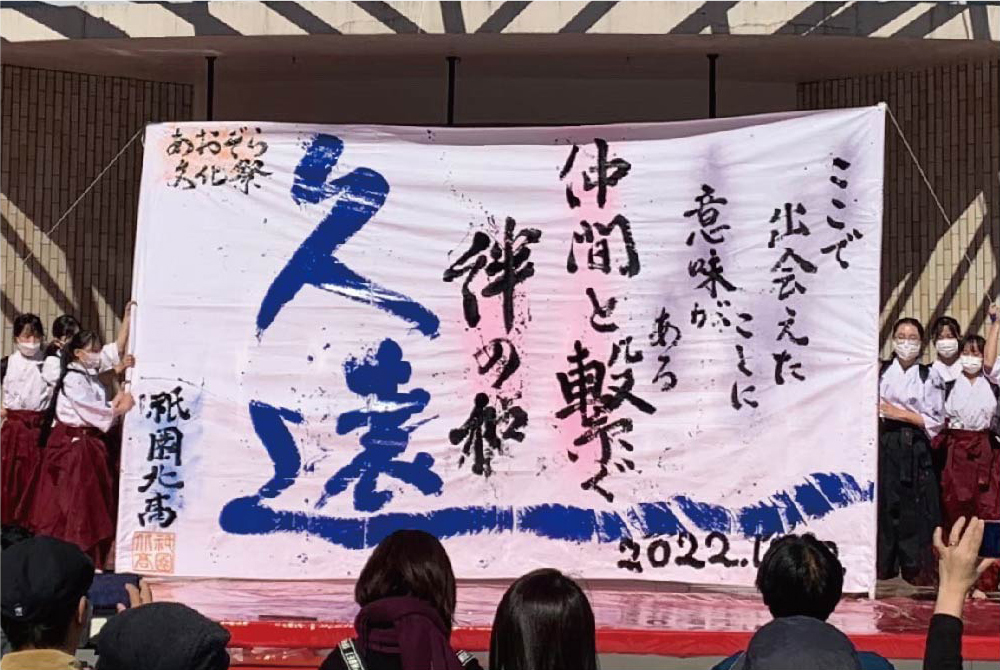 ここで
出会えた
ことに
意味が
ある
仲間と繋ぐ
絆の和
久遠
あおぞら
文化祭
祇園北高
2022.1